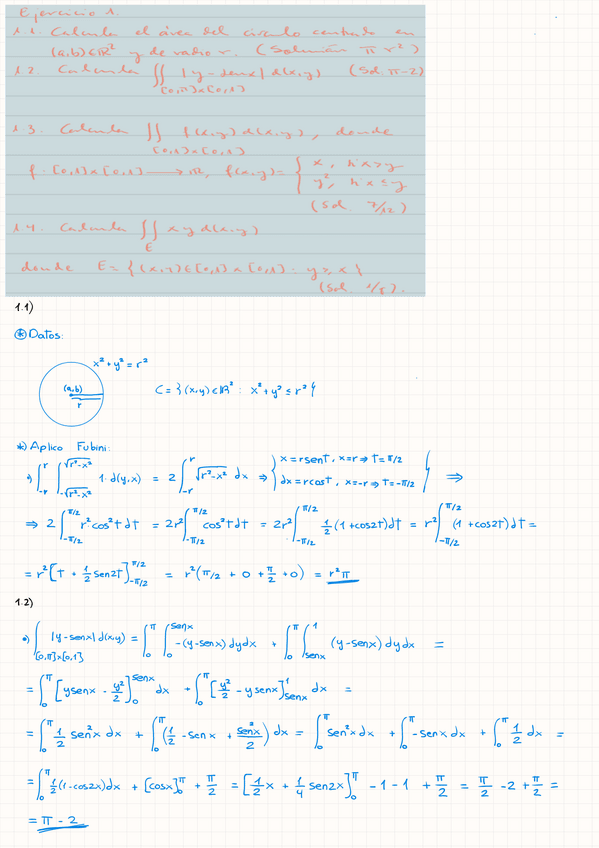 Ejercicio 1.
1.1. Calcula el área del círculo centrado en
(a,b)∈ℝ² y de radio r. (Solución π r²)
1.2. Calcula ∬_{[0,π]×[0,1]} |y-senx| d(x,y) (Sol. π-2)
1.3. Calcula ∬_{[0,1]×[0,1]} f(x,y) d(x,y), donde
f: [0,1]×[0,1] ⟶ ℝ, f(x,y) = { x, si x>y
y², si x≤y
(Sol. 7/12)
1.4. Calcula ∬_E x y d(x,y)
donde E = {(x,y)∈[0,1]×[0,1] : y≥x}
(Sol. 1/8).
1.1)
⊛ Datos:
x²+y²=r²
(a,b)
r
C = {(x,y)∈ℝ² : x²+y² ≤ r²}
*) Aplico Fubini:
•) ∫_{-r}^{r} ∫_{-√(r²-x²)}^{√(r²-x²)} 1·d(y,x) = 2∫_{-r}^{r} √(r²-x²) dx ⇒ { x=rsenT, x=r ⇒ T=π/2
dx=rcosT, x=-r ⇒ T=-π/2 } ⟹
⇒ 2∫_{-π/2}^{π/2} r²cos²t dt = 2r²∫_{-π/2}^{π/2} cos²t dt = 2r²∫_{-π/2}^{π/2} 1/2 (1+cos2t)dt = r²∫_{-π/2}^{π/2} (1+cos2T)dt =
= r²[T + 1/2 sen2T]_{-π/2}^{π/2} = r²(π/2 + 0 + π/2 + 0) = r²π
1.2)
•) ∫_{[0,π]×[0,1]} |y-senx| d(x,y) = ∫_0^π ∫_0^{senx} -(y-senx) dydx + ∫_0^π ∫_{senx}^1 (y-senx) dydx =
= ∫_0^π [ysenx - y²/2]_0^{senx} dx + ∫_0^π [y²/2 - ysenx]_{senx}^1 dx =
= ∫_0^π 1/2 sen²x dx + ∫_0^π (1/2 - senx + sen²x/2) dx = ∫_0^π sen²x dx + ∫_0^π -senx dx + ∫_0^π 1/2 dx =
= ∫_0^π 1/2 (1-cos2x)dx + [cosx]_0^π + π/2 = [1/2 x + 1/4 sen2x]_0^π - 1 - 1 + π/2 = π/2 - 2 + π/2 =
= π - 2